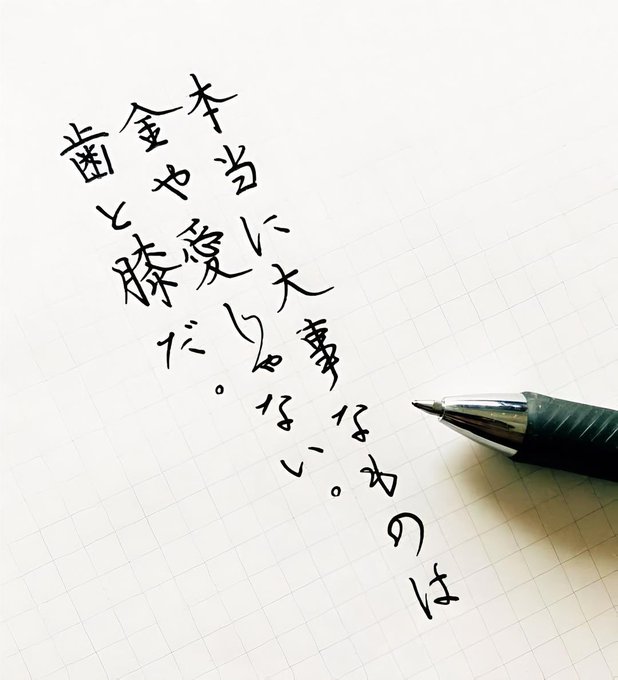 本当に大事なものは
金や愛じゃない。
歯と膝だ。